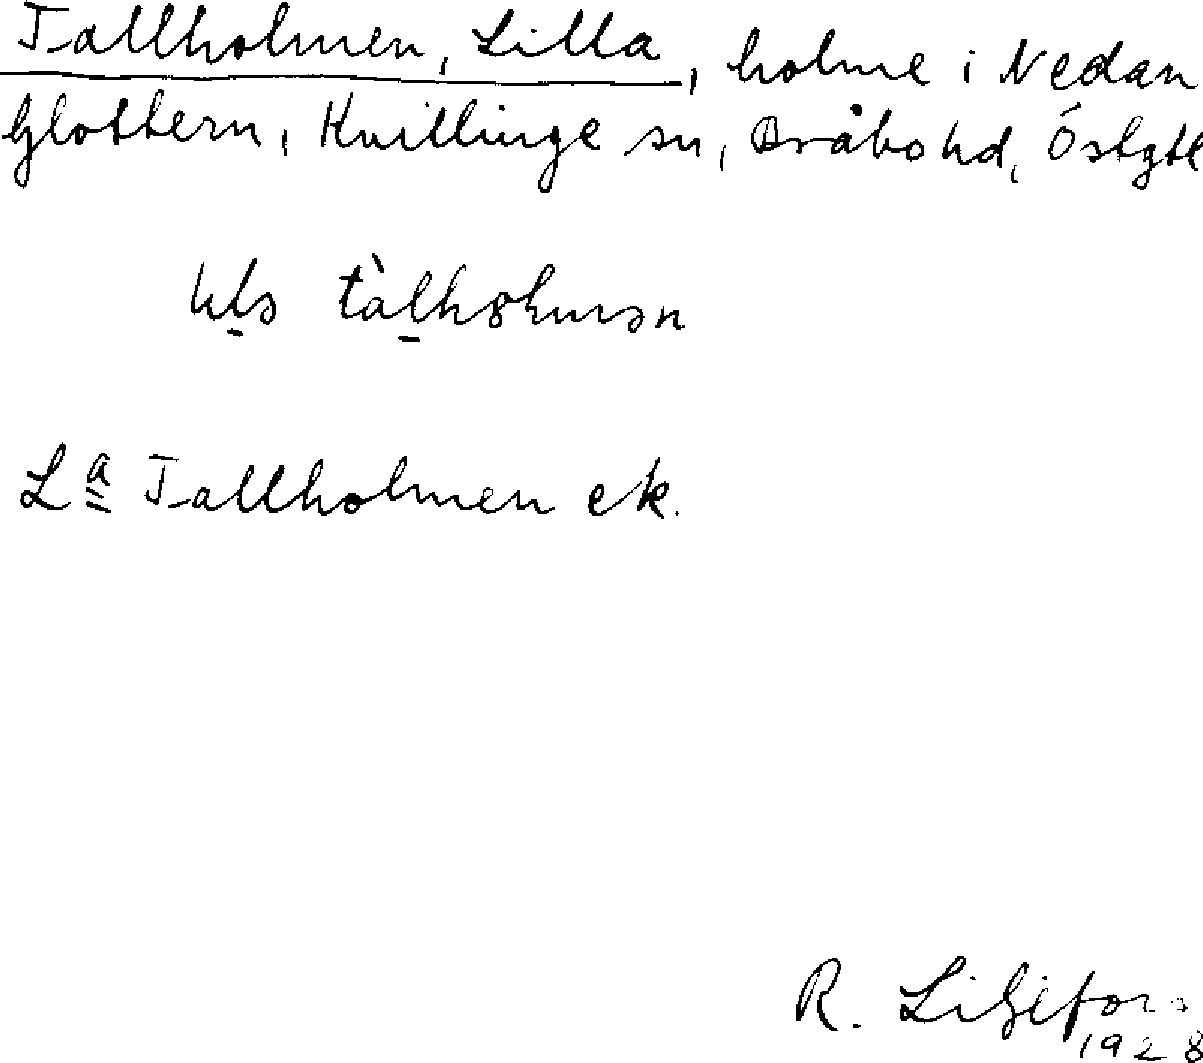 Tallholmen, Lilla, holme i Nedan
Glottern, Kvillinge sn, Bråbo hd, Östgtl
tàlhɷlmən
L<sup>a</sup> Tallholmen ek.
R. Liljefors
1928